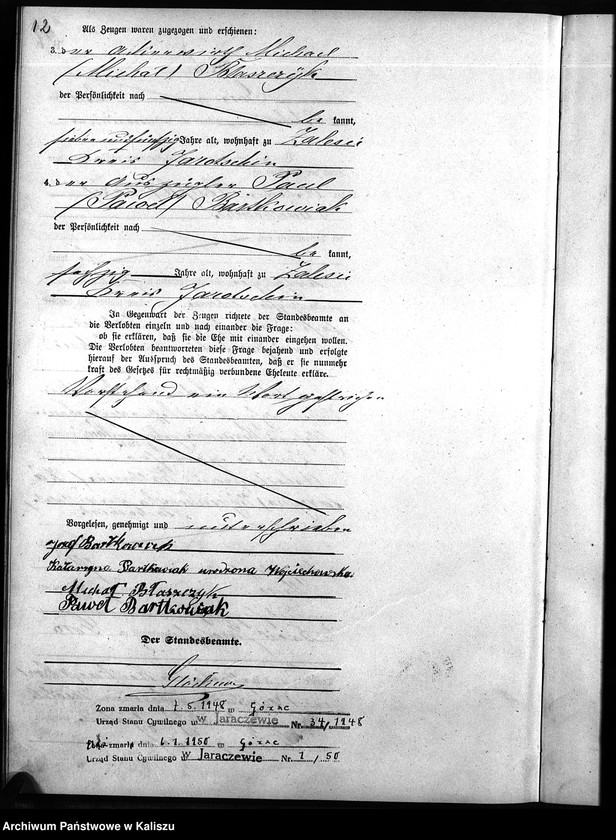 12
Als Zeugen waren zugezogen und erschienen:
3. der Ackerwirth Michael
(Michał) Błaszczyk
der Persönlichkeit nach
be kannt,
siebenundfünfzig Jahre alt, wohnhaft zu Zalesie
Kreis Jarotschin
4. der Auszügler Paul
(Paweł) Bartkowiak
der Persönlichkeit nach
be kannt,
sechzig Jahre alt, wohnhaft zu Zalesie
Kreis Jarotschin
In Gegenwart der Zeugen richtete der Standesbeamte an
die Verlobten einzeln und nach einander die Frage:
ob sie erklären, daß sie die Ehe mit einander eingehen wollen.
Die Verlobten beantworteten diese Frage bejahend und erfolgte
hierauf der Ausspruch des Standesbeamten, daß er sie nunmehr
kraft des Gesetzes für rechtmäßig verbundene Eheleute erkläre.
Vorstehend ein Wort gestrichen
Vorgelesen, genehmigt und unterschrieben
Józef Bartkowiak
Katarzyna Bartkowiak urodzona Wojciechowska
Michał Błaszczyk
Paweł Bartkowiak
Der Standesbeamte.
Żona zmarła dnia 7.5.1948 w Górze
Urząd Stanu Cywilnego w Jaraczewie Nr. 34/1948
zmarł dnia 6.1.1950 w Górze
Urząd Stanu Cywilnego w Jaraczewie Nr. 1/50
Archiwum Państwowe w Kaliszu